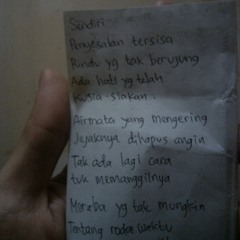 Sendiri
Penyesalan tersisa
Rindu yg tak berujung
Ada hati yg telah
Kusia-siakan.
Airmata yang mengering
Jejaknya dihapus angin
Tak ada lagi cara
tuk memanggilnya
Mereba yg tak mungkin
Tentang roda waktu